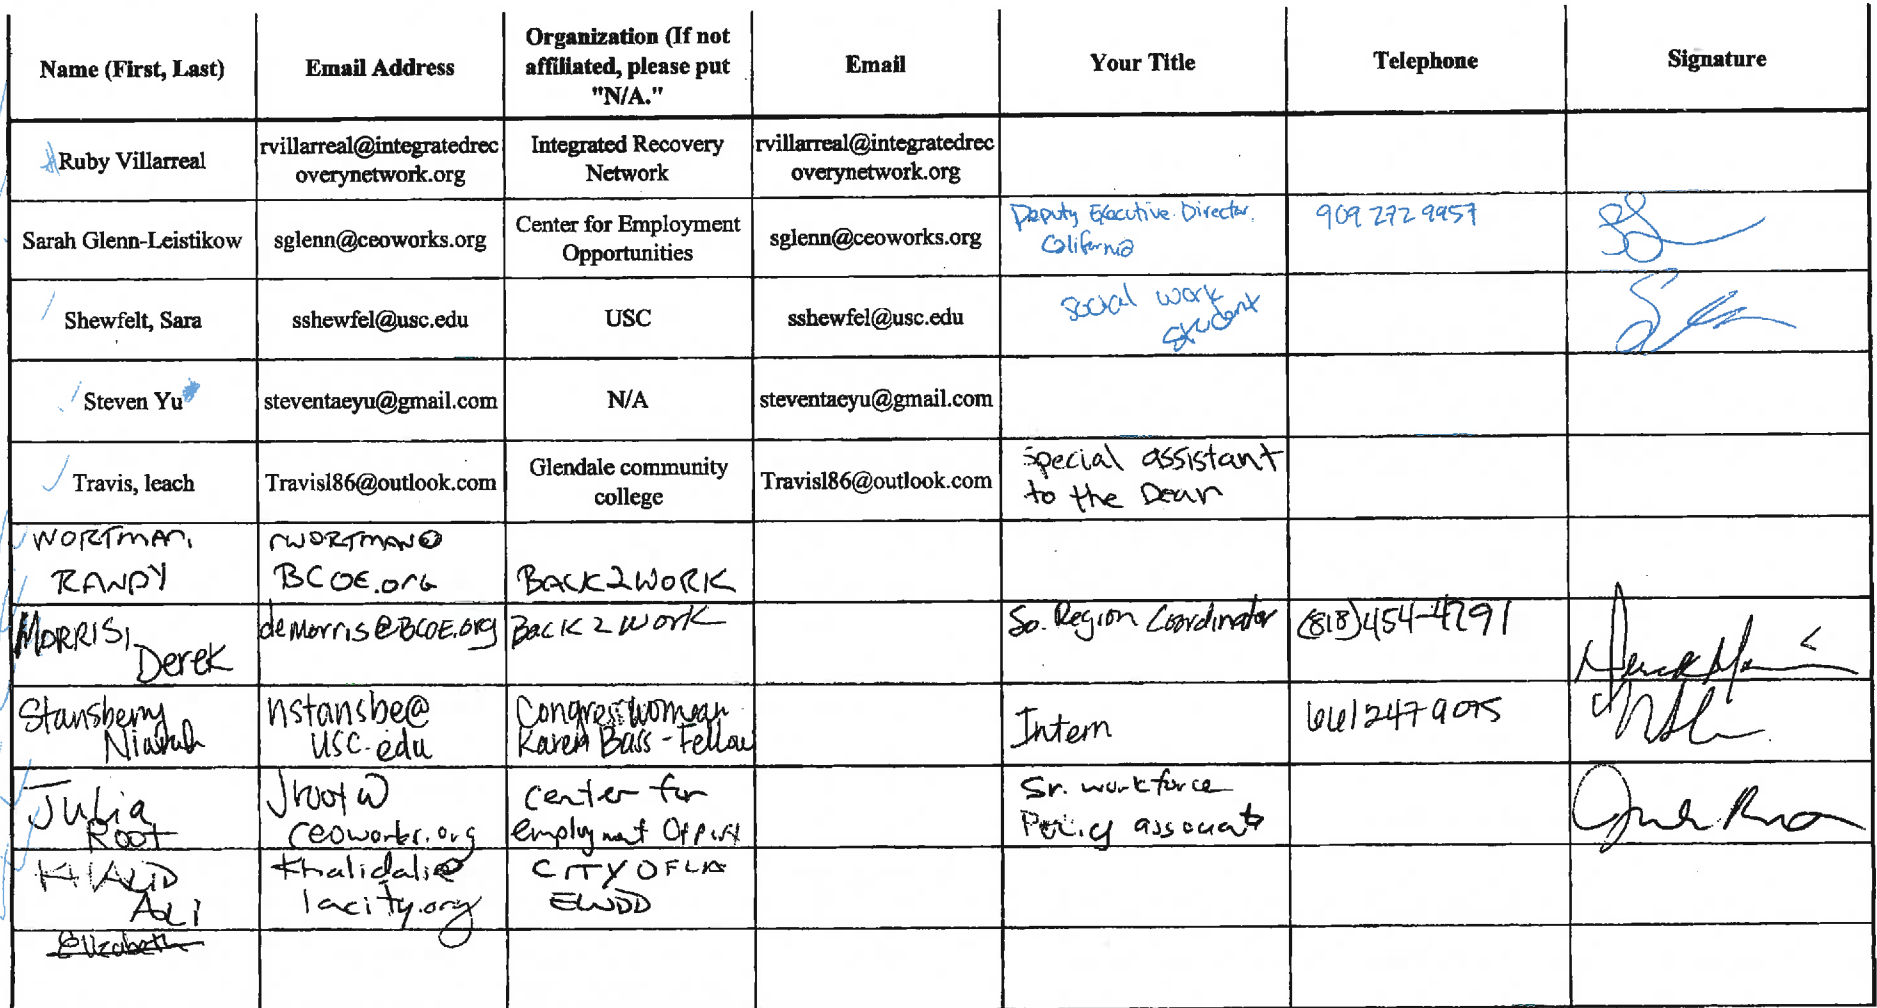 Name (First, Last) Email Address Organization (If not affiliated, please put "N/A." Email Your Title Telephone Signature
Ruby Villarreal rvillarreal@integratedrecoverynetwork.org Integrated Recovery Network rvillarreal@integratedrecoverynetwork.org
Sarah Glenn-Leistikow sglenn@ceoworks.org Center for Employment Opportunities sglenn@ceoworks.org Deputy Executive Director, California 909 272 9957
Shewfelt, Sara sshewfel@usc.edu USC sshewfel@usc.edu Social work student
Steven Yu steventaeyu@gmail.com N/A steventaeyu@gmail.com
Travis, leach Travisl86@outlook.com Glendale community college Travisl86@outlook.com Special assistant to the Dean
WORTMAN, RANDY rWORTMAN@BCOE.org BACK2WORK
MORRIS, Derek demorris@BCOE.org Back 2 Work So. Region Coordinator (818)454-4291
Stansberry nstansbe@usc.edu Congresswoman Karen Bass - Fellow Intern 661247
Julia Root Jroot@ceoworks.org Center for Employment Sr. workforce Policy associate
KHALID ALI khalidali@lacity.org CITY OF LA EWDD
Elizabeth